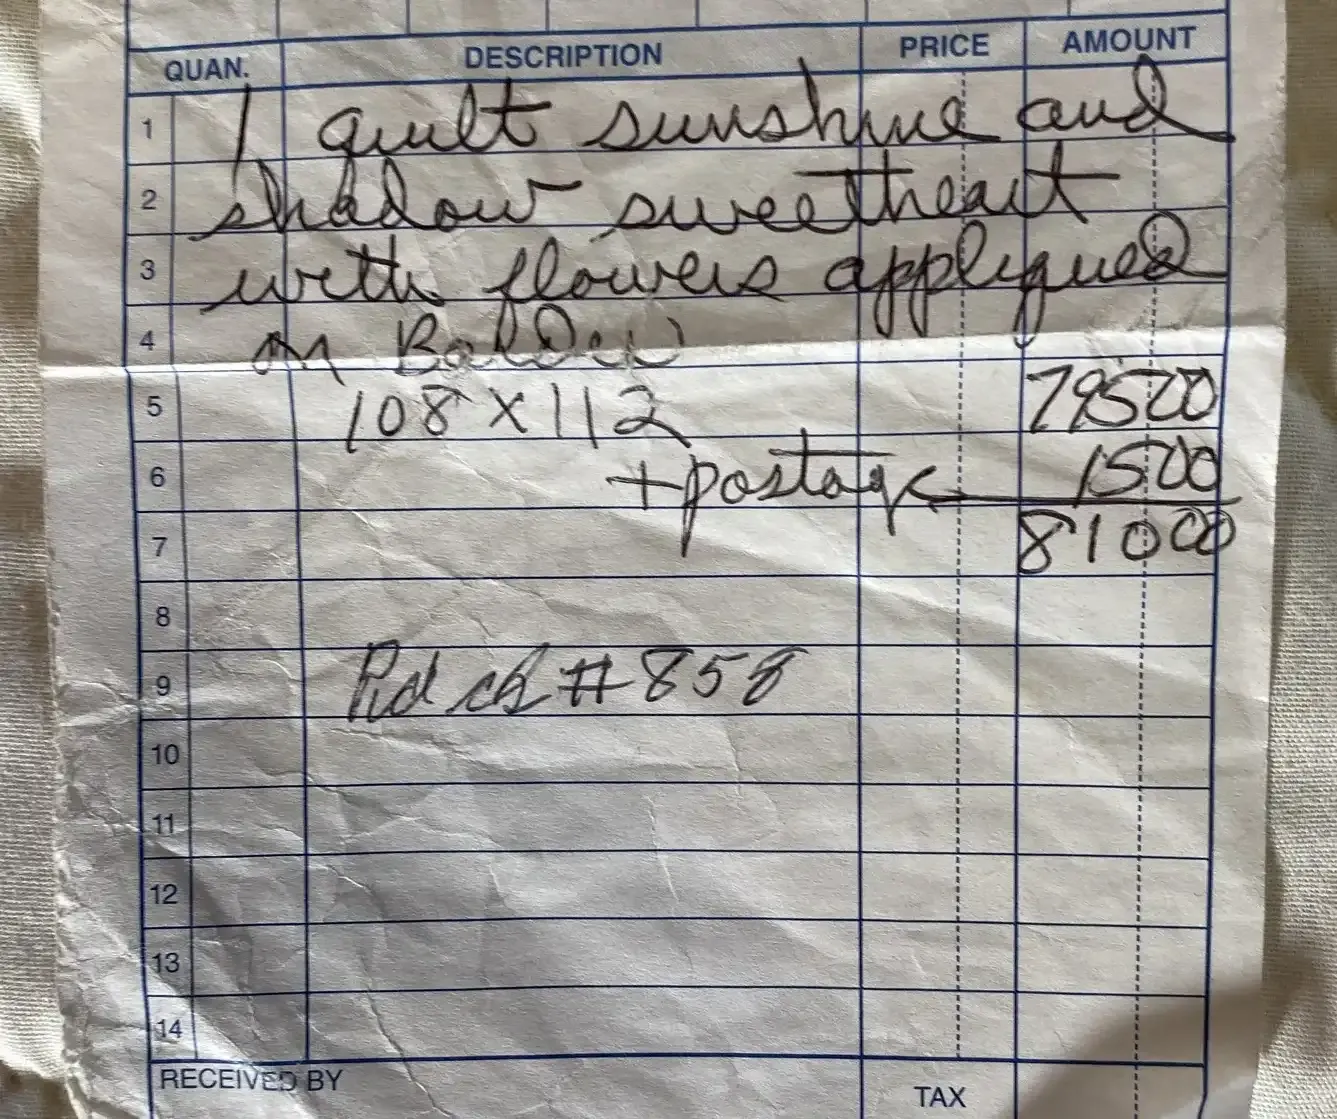 QUAN. DESCRIPTION PRICE AMOUNT
1 1 quilt sunshine and
2 shadow sweetheart
3 with flowers appliqued
4 on Borders
5 108 x 112 795 00
6 + postage 15 00
7 810 00
8
9 Pd ck # 858
10
11
12
13
14
RECEIVED BY TAX